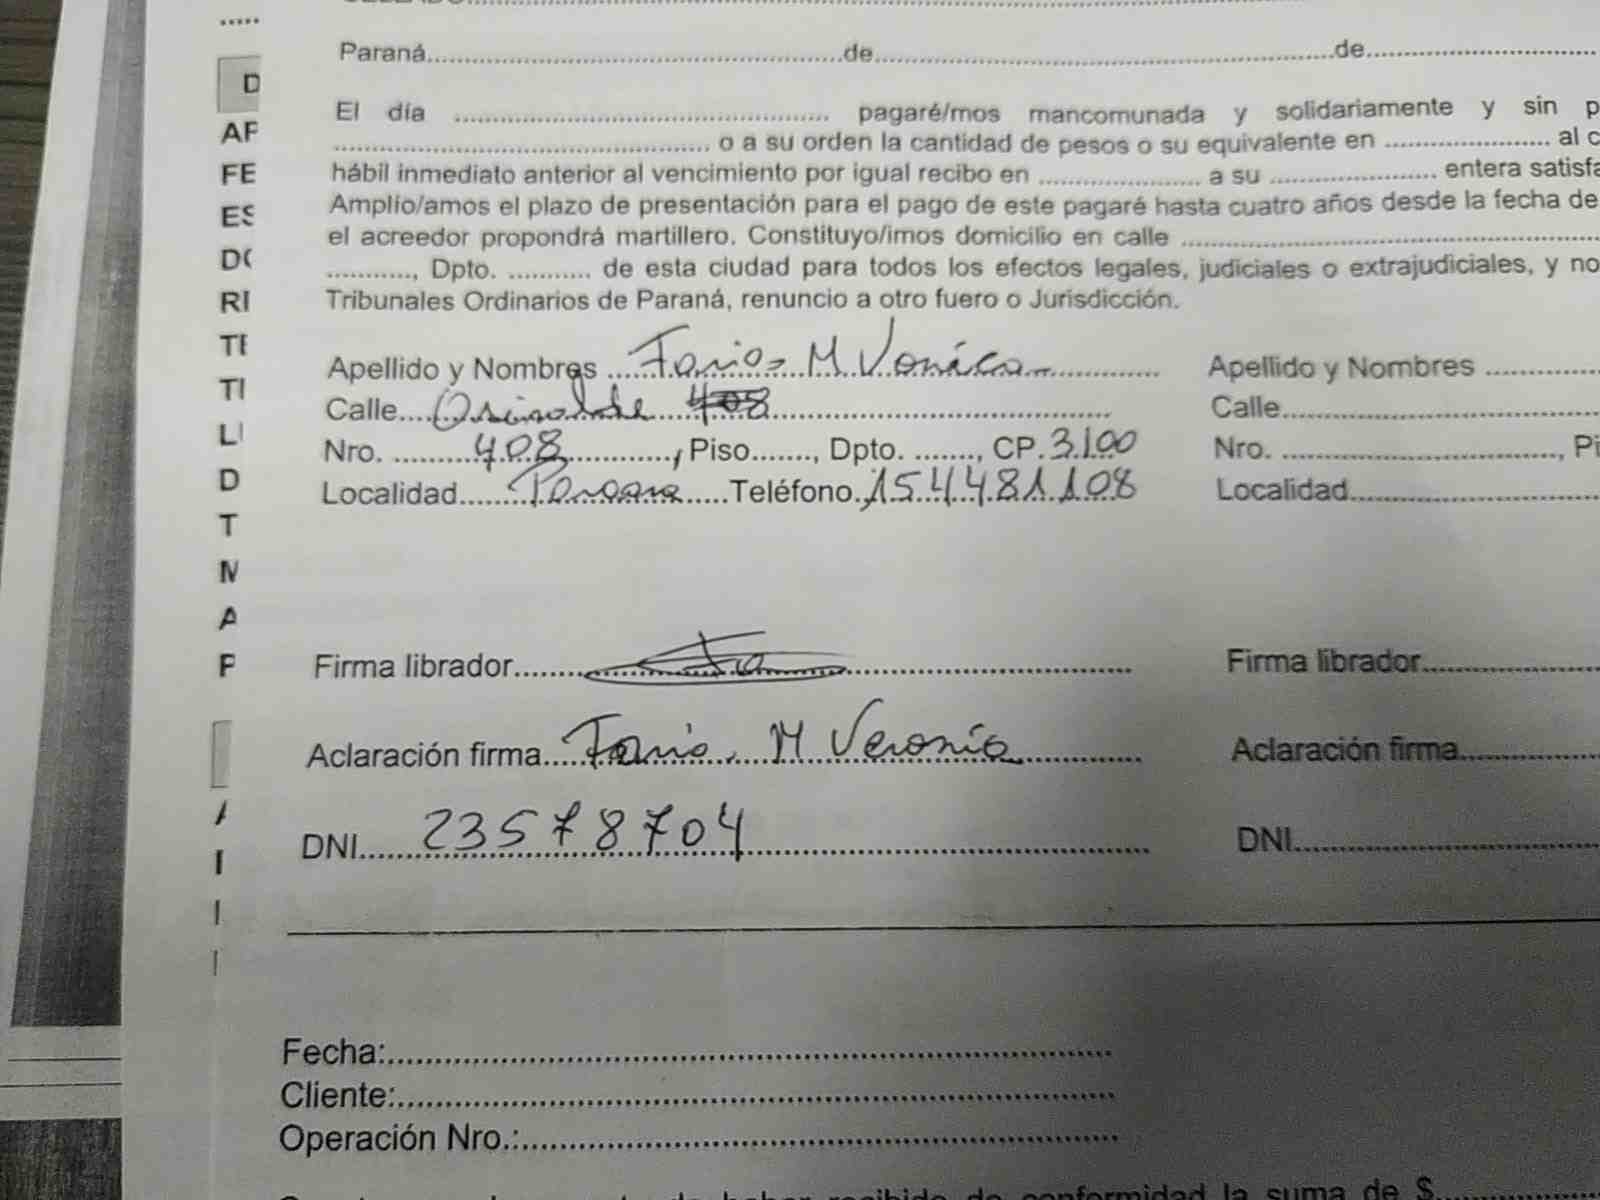 Paraná........de........de........
D
El día ........ pagaré/mos mancomunada y solidariamente y sin p
AF
........ o a su orden la cantidad de pesos o su equivalente en ........ al c
FE
hábil inmediato anterior al vencimiento por igual recibo en ........ a su ........ entera satisfa
ES
Amplío/amos el plazo de presentación para el pago de este pagaré hasta cuatro años desde la fecha de
el acreedor propondrá martillero. Constituyo/imos domicilio en calle ........
........, Dpto. ........ de esta ciudad para todos los efectos legales, judiciales o extrajudiciales, y no
Tribunales Ordinarios de Paraná, renuncio a otro fuero o Jurisdicción.
Apellido y Nombres ........ M ........ Apellido y Nombres ........
Calle........ 408 ........ Calle........
Nro. 408, Piso......., Dpto. ......., CP. 3100 Nro. ........, Pi
Localidad........ Parana ........Teléfono. 154481108 Localidad........
Firma librador........ Firma librador........
Aclaración firma........ M Veronica ........ Aclaración firma........
DNI........ 23578704 ........ DNI........
Fecha:........
Cliente:........
Operación Nro.:........
conformidad la suma de $